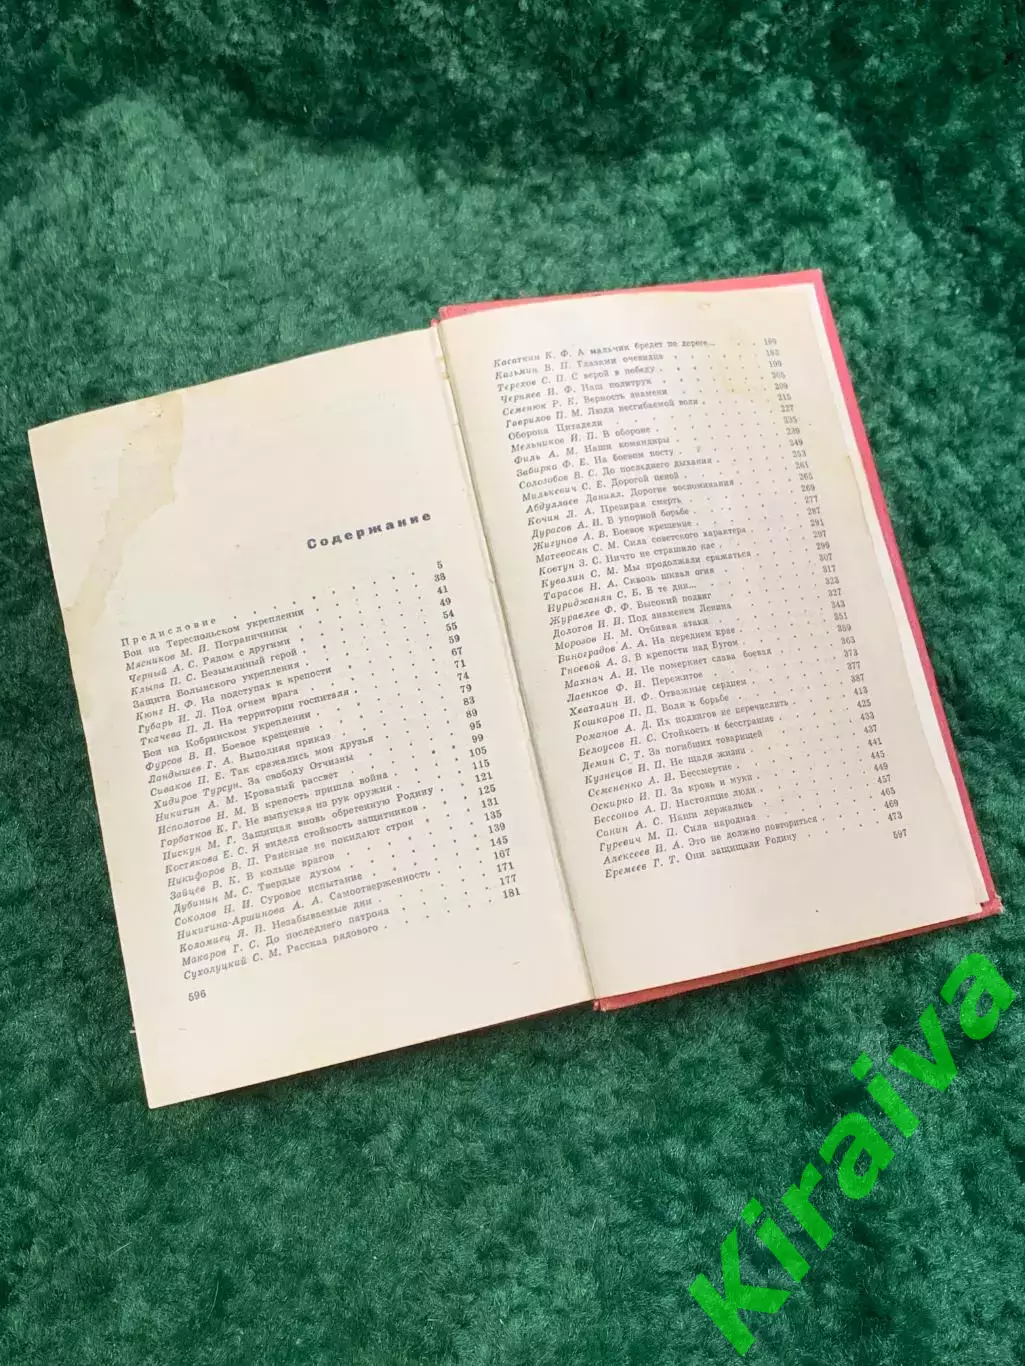 Содержание
Предисловие . . . . . 5
Бои на Тереспольском укреплении . . . . 38
Мясников М. И. Пограничники . . . . 41
Черный А. С. Рядом с другими . . . . 49
Клыпа П. С. Безымянный герой . . . . 54
Защита Волынского укрепления . . . . 55
Кюнг Н. Ф. На подступах к крепости . . . . 59
Губарь И. Л. Под огнем врага . . . . 67
Ткачева П. Л. На территории госпиталя . . . . 71
Бои на Кобринском укреплении . . . . 74
Фурсов В. И. Боевое крещение . . . . 79
Ландышев Г. А. Выполняя приказ . . . . 83
Сиваков П. Е. Так сражались мои друзья . . . . 89
Хидиров Турсун. За свободу Отчизны . . . . 95
Никитин А. М. Кровавый рассвет . . . . 99
Исполатов Н. М. В крепость пришла война . . . . 105
Гарбатков К. Г. Не выпуская из рук оружия . . . . 115
Пискун М. Г. Защищая вновь обретенную Родину . . . . 121
Костякова Е. С. Я видела стойкость защитников . . . . 125
Никифоров В. П. Раненые не покидают строя . . . . 131
Зайцев В. К. В кольце врагов . . . . 135
Дубинин М. С. Твердые духом . . . . 139
Соколов Н. И. Суровое испытание . . . . 145
Никитина-Аршинова А. А. Самоотверженность . . . . 167
Коломиец Я. И. Незабываемые дни . . . . 171
Макаров Г. С. До последнего патрона . . . . 177
Сухолуцкий С. М. Рассказ рядового . . . . 181
596
Касаткин К. Ф. А мальчик бредет по дороге... . . . 189
Казьмин В. П. Глазами очевидца . . . . 193
Терехов С. П. С верой в победу . . . . 199
Черняев И. Ф. Наш политрук . . . . 205
Семенюк Р. К. Верность знамени . . . . 209
Гаврилов П. М. Люди несгибаемой воли . . . . 215
Оборона Цитадели . . . . 227
Мельчиков И. П. В обороне . . . . 235
Филь А. М. Наши командиры . . . . 239
Забирко Ф. Е. На боевом посту . . . . 249
Солозобов В. С. До последнего дыхания . . . . 253
Милькевич С. Е. Дорогой ценой . . . . 261
Абдуллаев Даниял. Дорогие воспоминания . . . . 265
Кочин Л. А. Презирая смерть . . . . 269
Дурасов А. И. В упорной борьбе . . . . 277
Жигунов А. В. Боевое крещение . . . . 287
Матевосян С. М. Сила советского характера . . . . 291
Ковтун З. С. Ничто не страшило нас . . . . 297
Кувалин С. М. Мы продолжали сражаться . . . . 299
Тарасов Н. А. Сквозь шквал огня . . . . 307
Нуриджанян С. Б. В те дни... . . . . 317
Журавлев Ф. Ф. Высокий подвиг . . . . 323
Дологов И. И. Под знаменем Ленина . . . . 327
Морозов Н. М. Отбивая атаки . . . . 343
Виноградов А. А. На переднем крае . . . . 351
Гноевой А. З. В крепости над Бугом . . . . 359
Махнач А. И. Не померкнет слава боевая . . . . 363
Лаенков Ф. И. Пережитое . . . . 373
Хваталин И. Ф. Отважные сердцем . . . . 377
Кошкаров П. П. Воля к борьбе . . . . 387
Романов А. Д. Их подвигов не перечислить . . . . 413
Белоусов Н. С. Стойкость и бесстрашие . . . . 425
Демин С. Т. За погибших товарищей . . . . 433
Кузнецов И. П. Не щадя жизни . . . . 437
Семененко А. И. Бессмертие . . . . 441
Оскирко И. П. За кровь и муки . . . . 445
Бессонов А. П. Настоящие люди . . . . 449
Санин А. С. Наши держались . . . . 457
Гуревич М. П. Сила народная . . . . 465
Алексеев И. А. Это не должно повториться . . . . 469
Еремеев Г. Т. Они защищали Родину . . . . 473
597
Kiraiva